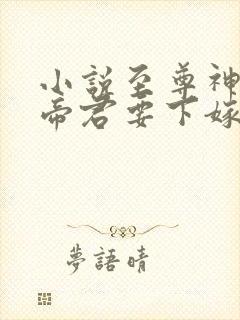 小説至尊神
帝君要下嫁
夢語晴